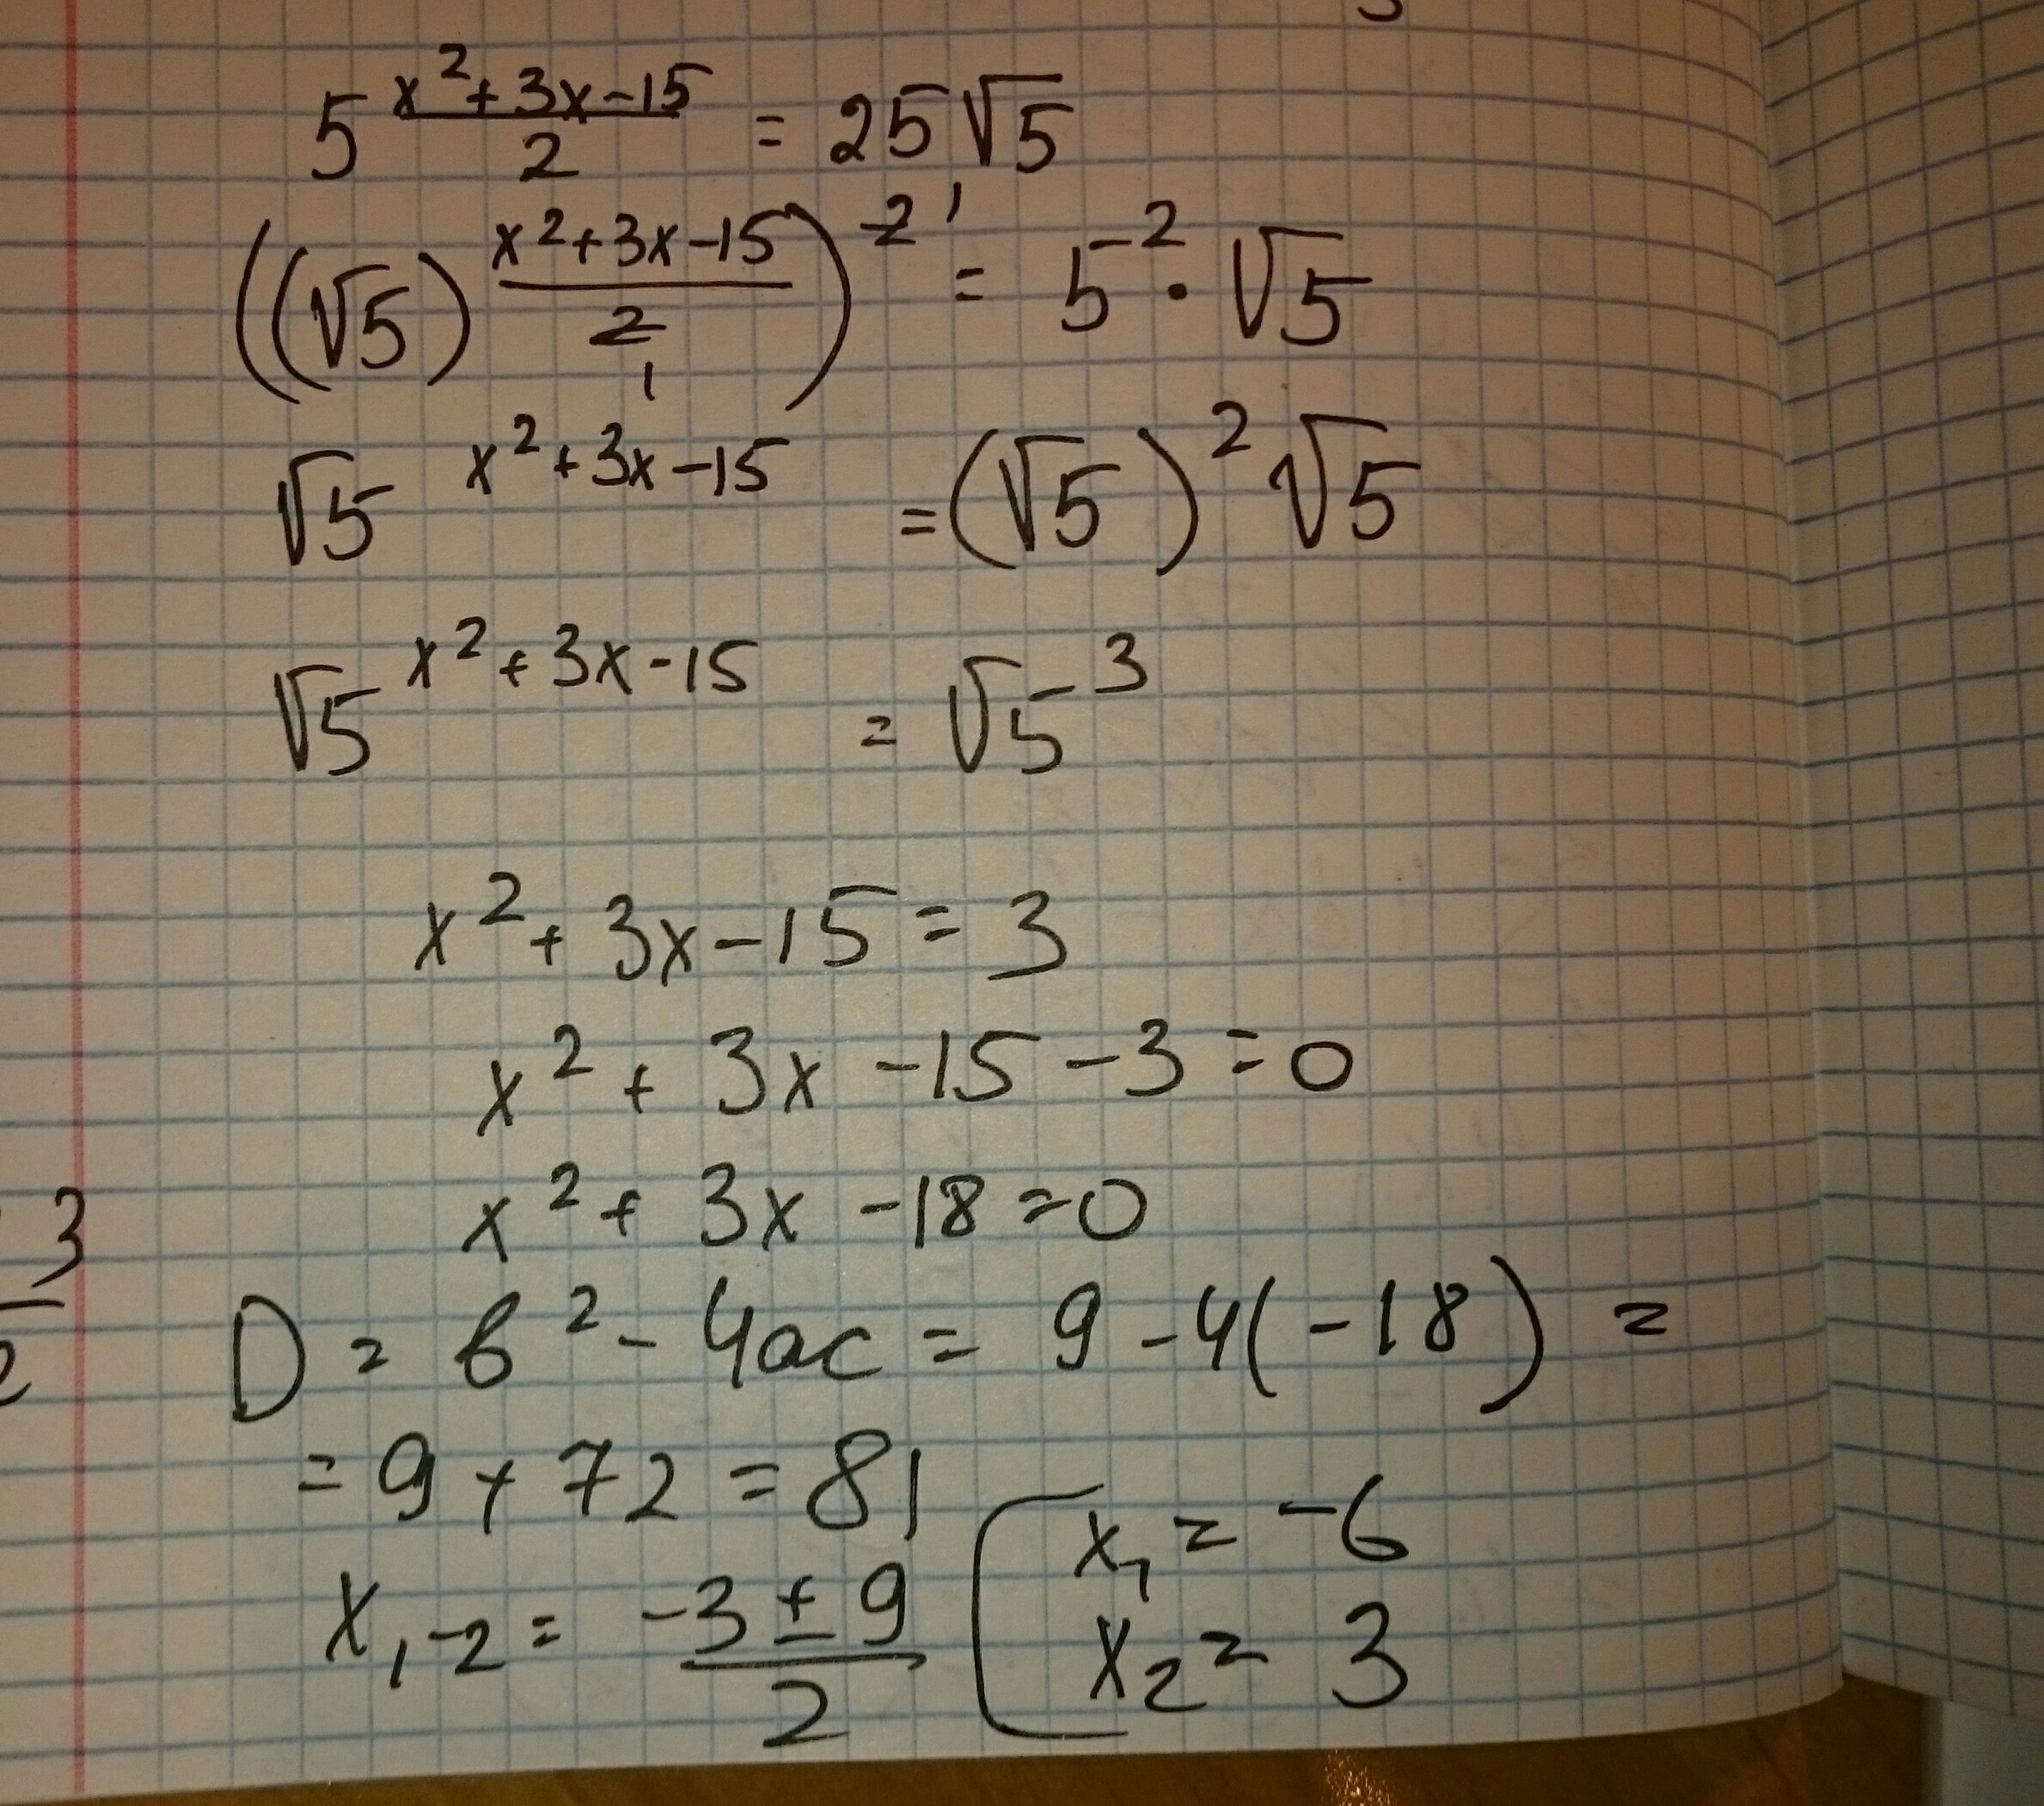 5^((x²+3x-15)/2) = 25√5
((√5)^((x²+3x-15)/2̶ 1))^2̶ 1 = 5² · √5
√5^(x²+3x-15) = (√5)²√5
√5^(x²+3x-15) = √5³
x²+3x-15=3
x²+3x-15-3=0
x²+3x-18=0
3
2
D = b²-4ac = 9-4(-18) =
= 9+72 = 81
x₁-₂ = (-3±9)/2 [ x₁ = -6
x₂ = 3